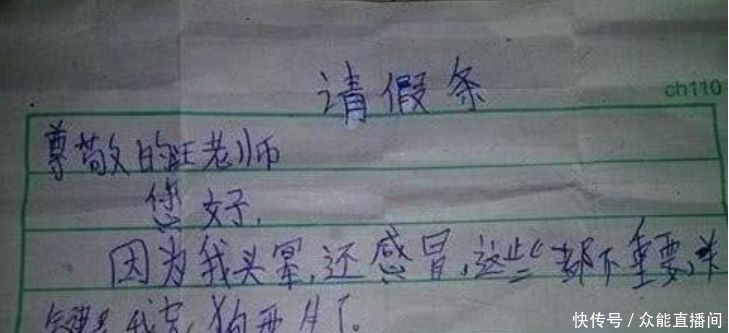 请假条
ch110
尊敬的旺老师
您好,
因为我头晕,还感冒,这些都不重要,关
键是我家狗要生了。
快传号/众能直播间